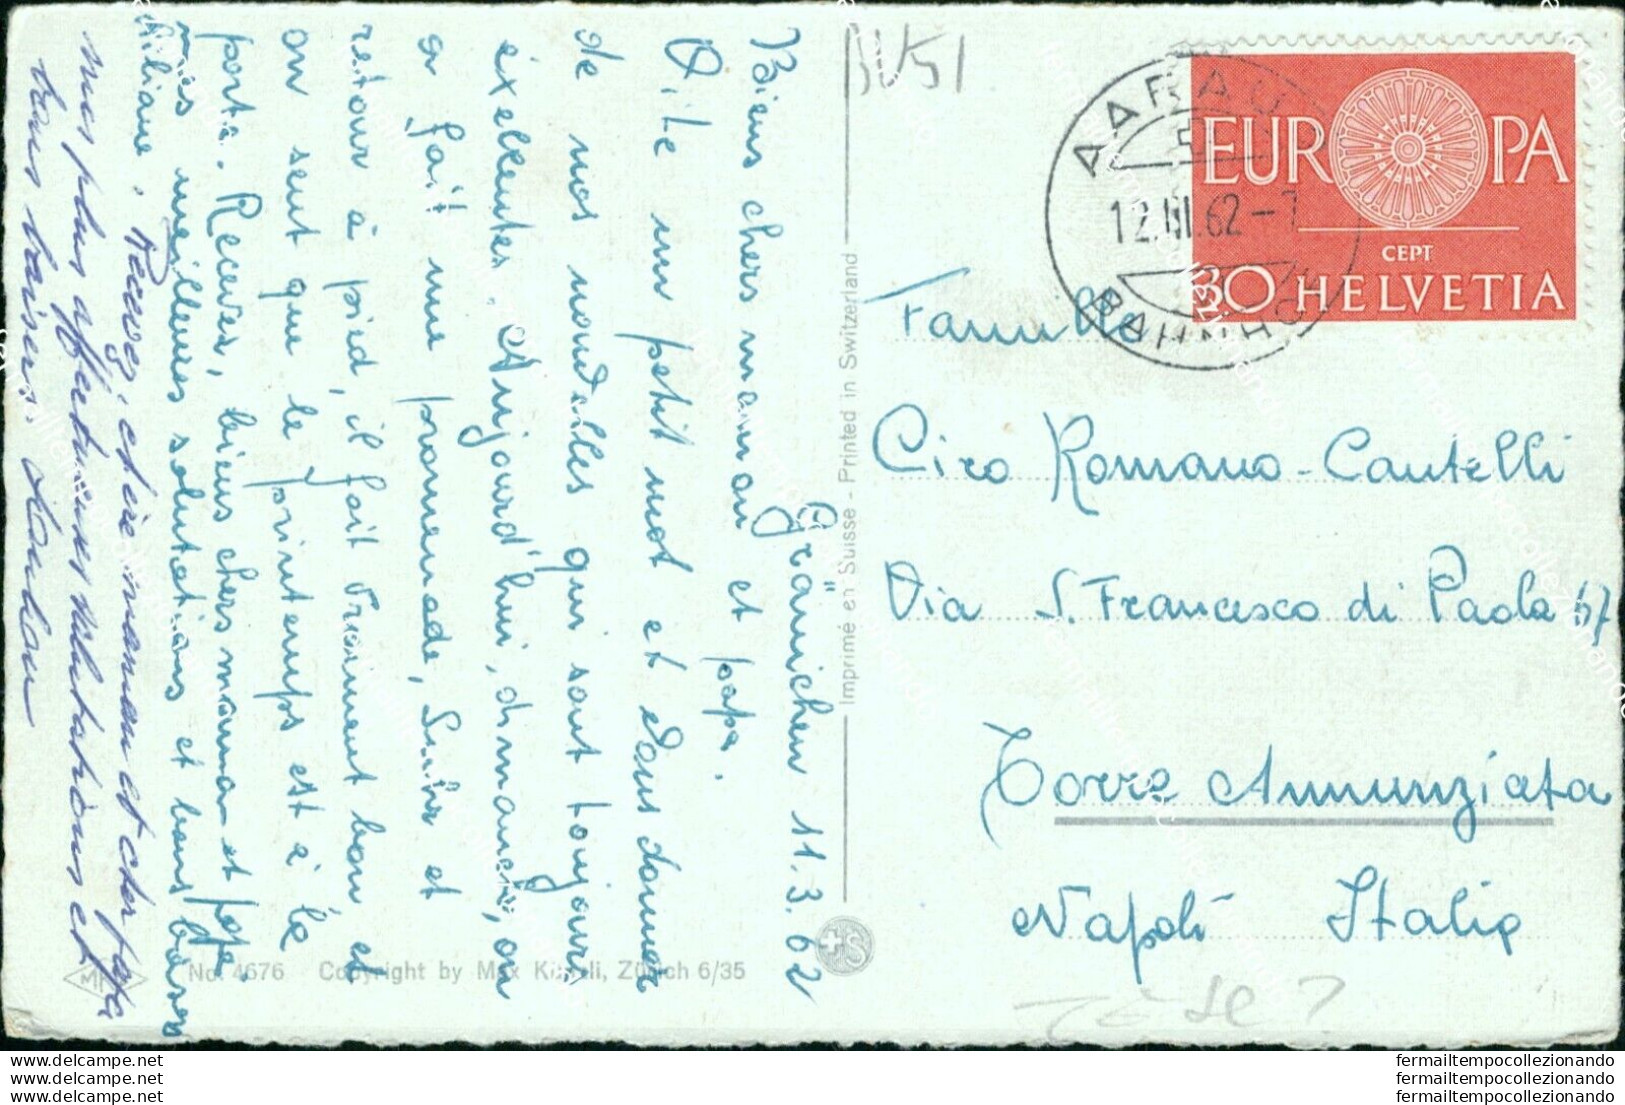 BU51
Gränichen 11.3.62
Biens chers maman et papa.
Vite un petit mot et vous donner
de nos nouvelles qui sont toujours
exellentes. Aujourd'hui, dimanche, on
a fait une promenade, Suhr et
retour à pied, il fait vraiment bon, et
on sent que le printemps est à la
porte. Recevez, biens chers maman et papa
mes meilleures salutations et bons baisers
Liliane. Recevez, chère maman et cher papa
mes plus affectueuses salutations et
bons baisers.
No. 4676 Copyright by Max Künzli, Zürich 6/35
Imprimé en Suisse - Printed in Switzerland
AARAU
12.III.62-7
BAHNHOF
EUROPA
CEPT
30 HELVETIA
Famille
Ciro Romano-Cantelli
Via S. Francesco di Paola 57
Torre Annunziata
Napoli Italia
www.delcampe.net
www.delcampe.net
www.delcampe.net
fermailtempocollezionando
fermailtempocollezionando
fermailtempocollezionando